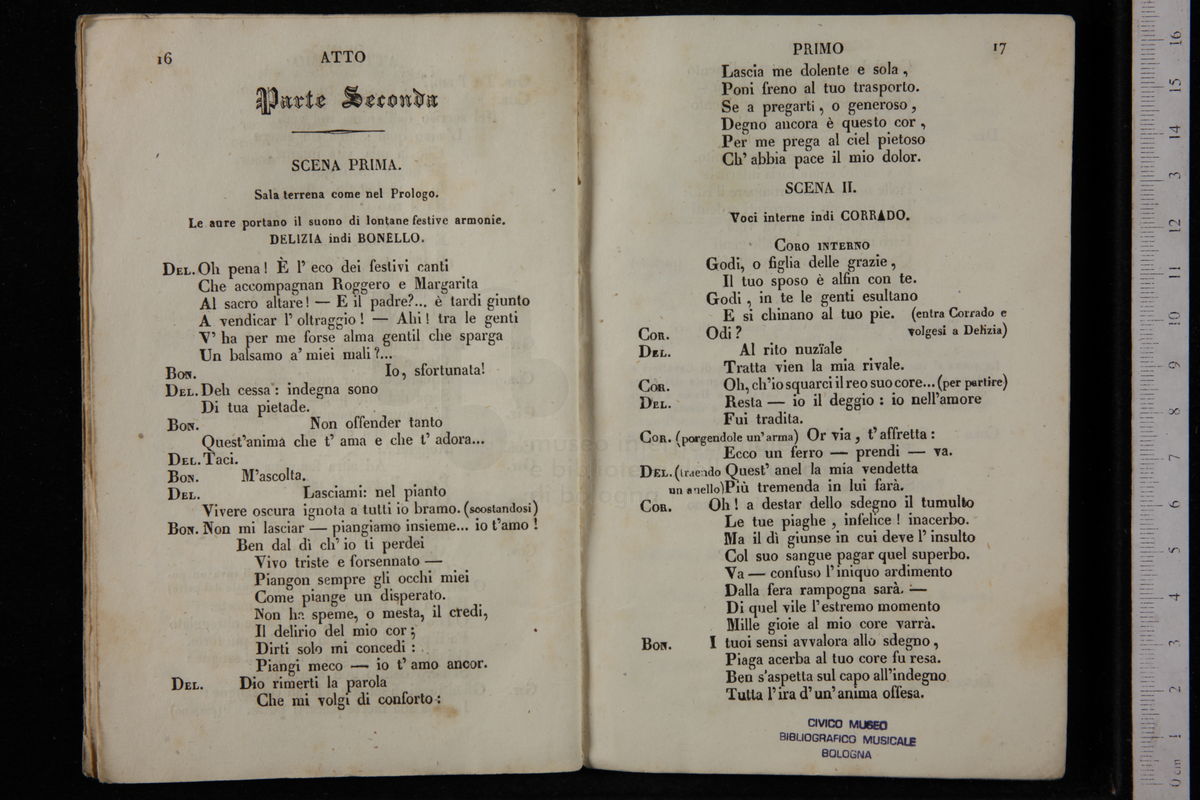 16
ATTO
Parte Seconda
SCENA PRIMA.
Sala terrena come nel Prologo.
Le aure portano il suono di lontane festive armonie.
DELIZIA indi BONELLO.
DEL. Oh pena! È l' eco dei festivi canti
Che accompagnan Roggero e Margarita
Al sacro altare! — E il padre?... è tardi giunto
A vendicar l' oltraggio! — Ahi! tra le genti
V' ha per me forse alma gentil che sparga
Un balsamo a' miei mali?...
BON. Io, sfortunata!
DEL. Deh cessa: indegna sono
Di tua pietade.
BON. Non offender tanto
Quest'anima che t' ama e che t' adora...
DEL. Taci.
BON. M'ascolta.
DEL. Lasciami: nel pianto
Vivere oscura ignota a tutti io bramo. (scostandosi)
BON. Non mi lasciar — piangiamo insieme... io t'amo!
Ben dal dì ch' io ti perdei
Vivo triste e forsennato —
Piangon sempre gli occhi miei
Come piange un disperato.
Non ha speme, o mesta, il credi,
Il delirio del mio cor;
Dirti solo mi concedi:
Piangi meco — io t' amo ancor.
DEL. Dio rimerti la parola
Che mi volgi di conforto:
PRIMO
17
Lascia me dolente e sola,
Poni freno al tuo trasporto.
Se a pregarti, o generoso,
Degno ancora è questo cor,
Per me prega al ciel pietoso
Ch' abbia pace il mio dolor.
SCENA II.
Voci interne indi CORRADO.
CORO INTERNO
Godi, o figlia delle grazie,
Il tuo sposo è alfin con te.
Godi, in te le genti esultano
E si chinano al tuo pie. (entra Corrado e
COR. Odi? volgesi a Delizia)
DEL. Al rito nuzïale
Tratta vien la mia rivale.
COR. Oh, ch'io squarci il reo suo core... (per partire)
DEL. Resta — io il deggio: io nell'amore
Fui tradita.
COR. (porgendole un' arma) Or via, t' affretta:
Ecco un ferro — prendi — va.
DEL. (traendo Quest' anel la mia vendetta
un anello) Più tremenda in lui farà.
COR. Oh! a destar dello sdegno il tumulto
Le tue piaghe, infelice! inacerbo.
Ma il dì giunse in cui deve l' insulto
Col suo sangue pagar quel superbo.
Va — confuso l' iniquo ardimento
Dalla fera rampogna sarà. —
Di quel vile l' estremo momento
Mille gioie al mio core varrà.
BON. I tuoi sensi avvalora allo sdegno,
Piaga acerba al tuo core fu resa.
Ben s'aspetta sul capo all'indegno
Tutta l' ira d' un' anima offesa.
CIVICO MUSEO
BIBLIOGRAFICO MUSICALE
BOLOGNA